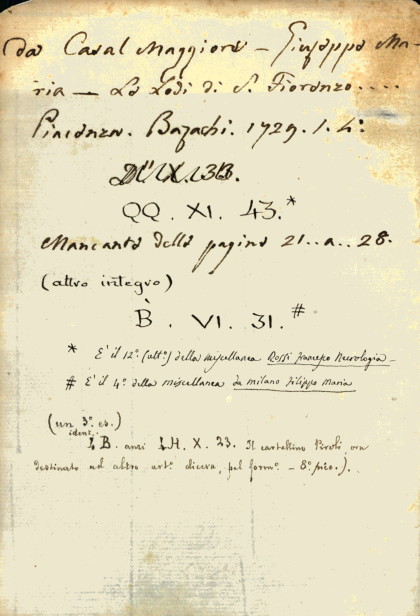 da Casal Maggiore — Giuseppe Ma-
ria — Le Lodi di S. Fiorenzo....
Piacenza. Bazachi. 1729. 1. 4:
QQ. XI. 43.*
Mancante delle pagine 21..a..28.
(altro integro)
B. VI. 31.#
* È il 12º. (alt.º) della miscellanea Rossi Francesco Necrologia —
# È il 4º della miscellanea da Milano Filippo Maria
(un 3º. es.)
ident.
B. anzi H. X. 23. Il cartellino Piroli, ora
destinato ad altro art.º diceva, pel form.º — 8º. picc.).